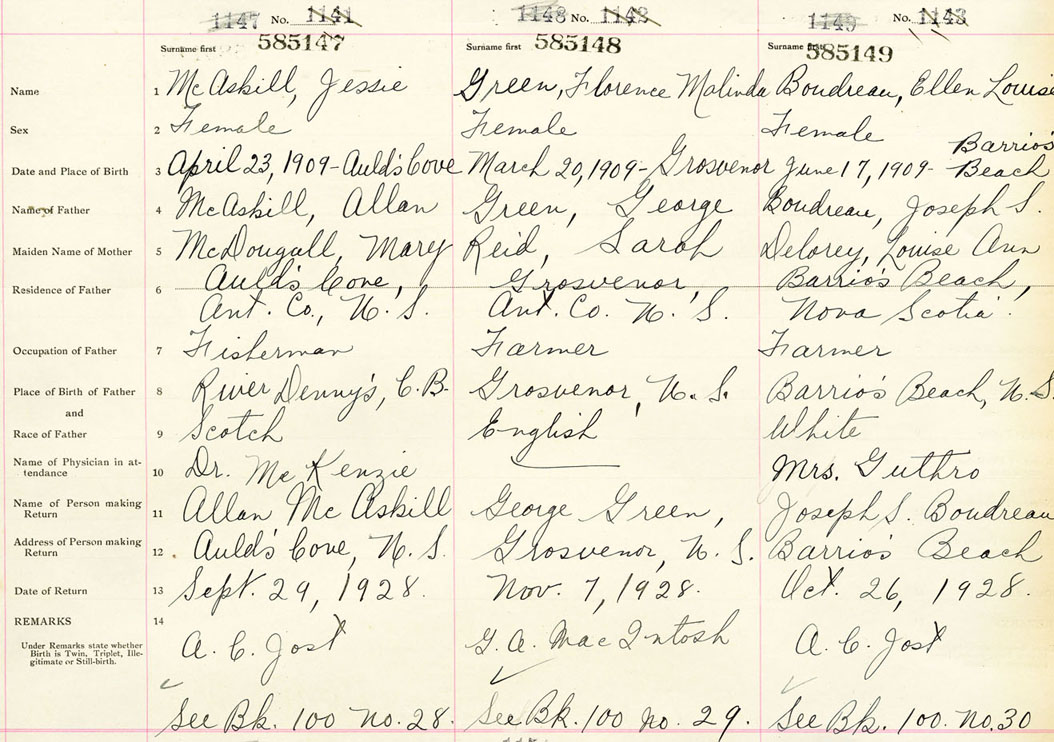 1147 No. 1141 1148 No. 1142 1149 No. 1143
Surname first 585147 Surname first 585148 Surname first 585149
Name 1 McAskill, Jessie Green, Florence Malinda Boudreau, Ellen Louise
Sex 2 Female Female Female
Date and Place of Birth 3 April 23, 1909 - Auld's Cove March 20, 1909 - Grosvenor June 17, 1909 - Barrio's Beach
Name of Father 4 McAskill, Allan Green, George Boudreau, Joseph S.
Maiden Name of Mother 5 McDougall, Mary Reid, Sarah Delorey, Louise Ann
Residence of Father 6 Auld's Cove, Grosvenor, Barrio's Beach,
Ant. Co., N. S. Ant. Co. N. S. Nova Scotia.
Occupation of Father 7 Fisherman Farmer Farmer
Place of Birth of Father 8 River Denny's, C. B. Grosvenor, N. S. Barrio's Beach, N. S.
and
Race of Father 9 Scotch English White
Name of Physician in at-
tendance 10 Dr. McKenzie Mrs. Guthro
Name of Person making
Return 11 Allan McAskill George Green, Joseph S. Boudreau
Address of Person making
Return 12 Auld's Cove, N. S. Grosvenor, N. S. Barrio's Beach
Date of Return 13 Sept. 29, 1928. Nov. 7, 1928. Oct. 26, 1928.
REMARKS 14
Under Remarks state whether
Birth is Twin, Triplet, Ille-
gitimate or Still-birth.
A. C. Jost G. A. MacIntosh A. C. Jost
See Bk. 100 No. 28. See Bk. 100 No. 29. See Bk. 100. No. 30